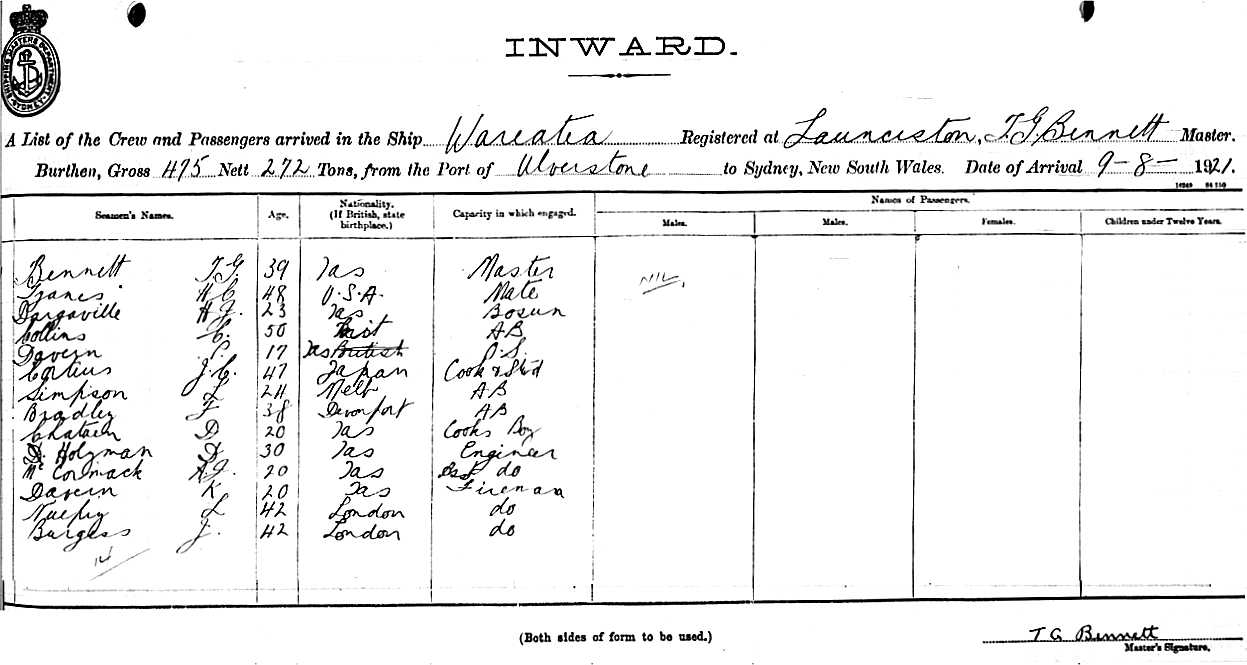 SHIPPING MASTERS DEPARTMENT SYDNEY
INWARD.
A List of the Crew and Passengers arrived in the Ship Wareatea Registered at Launceston, T.G. Bennett Master.
Burthen, Gross 475 Nett 272 Tons, from the Port of Ulverstone to Sydney, New South Wales. Date of Arrival 9-8-1921.
Seamen's Names. Age. Nationality. (If British, state birthplace.) Capacity in which engaged. Names of Passengers.
Males. Males. Females. Children under Twelve Years.
Bennett T.G. 39 Tas Master NIL
H C 48 U.S.A. Mate
Dargaville H.J. 23 Tas Bosun
Collins C. 50 AB
Davern P. 17 Tas British O.S.
J.C. 47 Japan Cook & Std
Simpson L 24 Melb AB
Bradley F 38 Devonport AB
D 20 Tas Cooks Boy
Holyman D 30 Tas Engineer
McCormack A.J. 20 Tas do
Davern K 20 Tas Fireman
L 42 London do
Burgess J. 42 London do
14
(Both sides of form to be used.)
T G Bennett
Master's Signature.